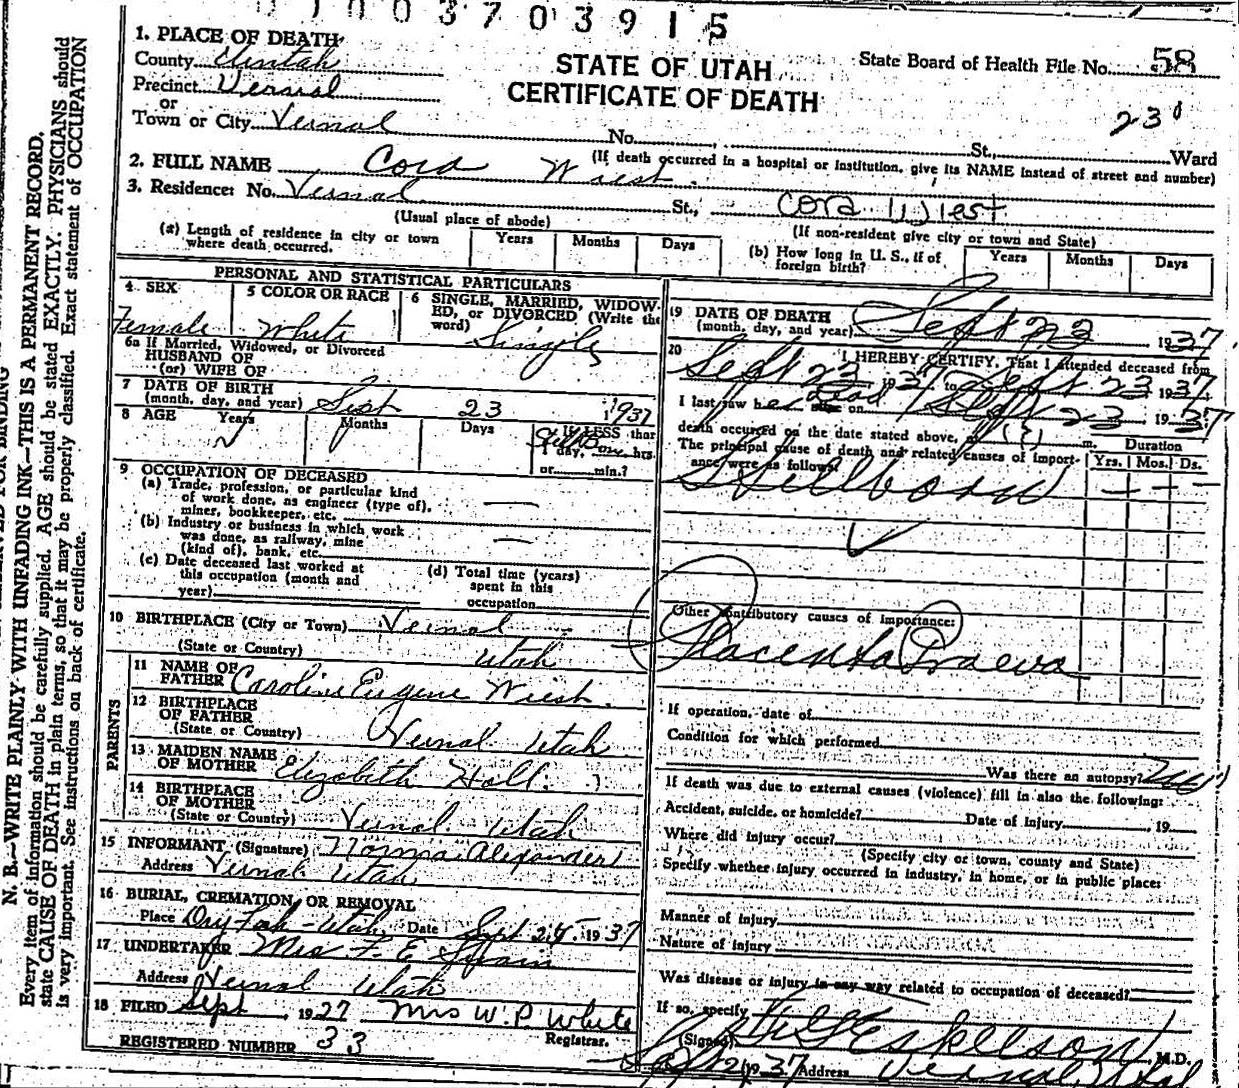 0 1 0 0 3 7 0 3 9 1 5
1. PLACE OF DEATH
County Uintah
Precinct Vernal
or
Town or City Vernal
STATE OF UTAH
CERTIFICATE OF DEATH
State Board of Health File No. 58
230
No. St., Ward
(If death occurred in a hospital or institution, give its NAME instead of street and number)
2. FULL NAME Cora Wiest.
3. Residence: No. Vernal St., Cora Wiest
(Usual place of abode)
(If non-resident give city or town and State)
(a) Length of residence in city or town
where death occurred.
Years Months Days
(b) How long in U. S., if of
foreign birth?
Years Months Days
PERSONAL AND STATISTICAL PARTICULARS
4. SEX
Female
5 COLOR OR RACE
White
6 SINGLE, MARRIED, WIDOW-
ED, or DIVORCED (Write the
word) Single
6a If Married, Widowed, or Divorced
HUSBAND OF
(or) WIFE OF
7 DATE OF BIRTH
(month, day, and year) Sept 23 1937
8 AGE Years Months Days
If LESS than
1 day, hrs.
or min.?
9 OCCUPATION OF DECEASED
(a) Trade, profession, or particular kind
of work done, as engineer (type of),
miner, bookkeeper, etc.
(b) Industry or business in which work
was done, as railway, mine
(kind of), bank, etc.
(c) Date deceased last worked at
this occupation (month and
year)
(d) Total time (years)
spent in this
occupation
10 BIRTHPLACE (City or Town) Vernal
(State or Country) Utah
PARENTS
11 NAME OF
FATHER Eugene Wiest.
12 BIRTHPLACE
OF FATHER
(State or Country) Vernal Utah
13 MAIDEN NAME
OF MOTHER Elizabeth Hall.
14 BIRTHPLACE
OF MOTHER
(State or Country) Vernal Utah
15 INFORMANT (Signature) Norma Alexander
Address Vernal Utah
16 BURIAL, CREMATION, OR REMOVAL
Place Dry Fork - Utah. Date Sept 24. 1937
17 UNDERTAKER Mrs F. E. Swain
Address Vernal Utah
18 FILED Sept 1927 Mrs W. P. White
Registrar.
REGISTERED NUMBER 33
19 DATE OF DEATH
(month, day, and year) Sept 23 1937
20 I HEREBY CERTIFY, That I attended deceased from
Sept 23 1937, to Sept 23 1937
I last saw her dead on Sept 23 1937
death occurred on the date stated above, m.
The principal cause of death and related causes of import-
ance were as follows:
Duration
Yrs. Mos. Ds.
Stillborn
Other contributory causes of importance:
Placenta Praevia
If operation, date of
Condition for which performed
Was there an autopsy?
If death was due to external causes (violence) fill in also the following:
Accident, suicide, or homicide? Date of injury 19
Where did injury occur?
(Specify city or town, county and State)
Specify whether injury occurred in industry, in home, or in public place:
Manner of injury
Nature of injury
Was disease or injury in any way related to occupation of deceased?
If so, specify
(Signed) Eskelson M.D.
1937 Address Vernal Utah
N. B.—WRITE PLAINLY WITH UNFADING INK—THIS IS A PERMANENT RECORD.
Every item of information should be carefully supplied. AGE should be stated EXACTLY. PHYSICIANS should
state CAUSE OF DEATH in plain terms, so that it may be properly classified. Exact statement of OCCUPATION
is very important. See instructions on back of certificate.